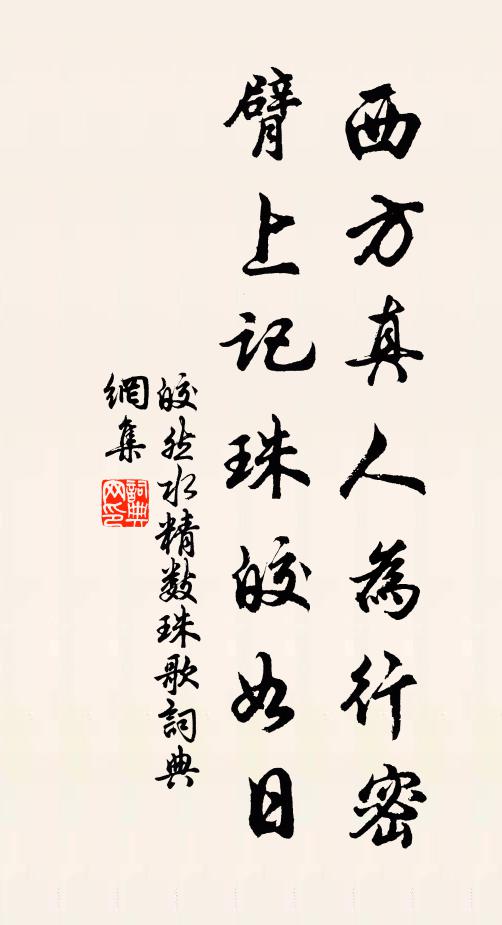 西方真人為行密
臂上記珠皎如日
皎然水精數珠歌詞典
網集
詞典
网印